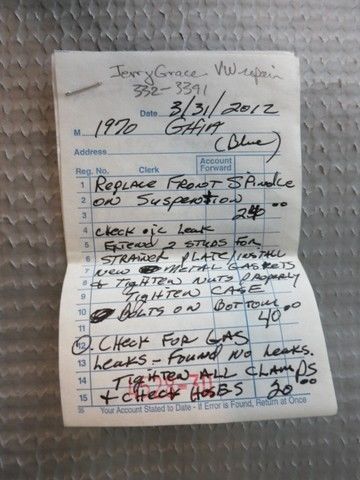 Jerry Grace VW repair
332-3391
Date 3/31/2012
M 1970 GHIA
(Blue)
Address
Reg. No. Clerk Account Forward
1 REPLACE FRONT SPINDLE
2 ON SUSPENSION
3 240.00
4 CHECK OIL LEAK
5 EXTEND 2 STUDS FOR
6 STRAINER PLATE/INSTALL
7 NEW METAL GASKETS
8 & TIGHTEN NUTS PROPERLY
9 TIGHTEN CASE
10 BOLTS ON BOTTOM
11 40.00
12 CHECK FOR GAS
13 LEAKS - FOUND NO LEAKS.
14 TIGHTEN ALL CLAMPS
15 & CHECK HOSES 20.00
35 Your Account Stated to Date - If Error is Found, Return at Once